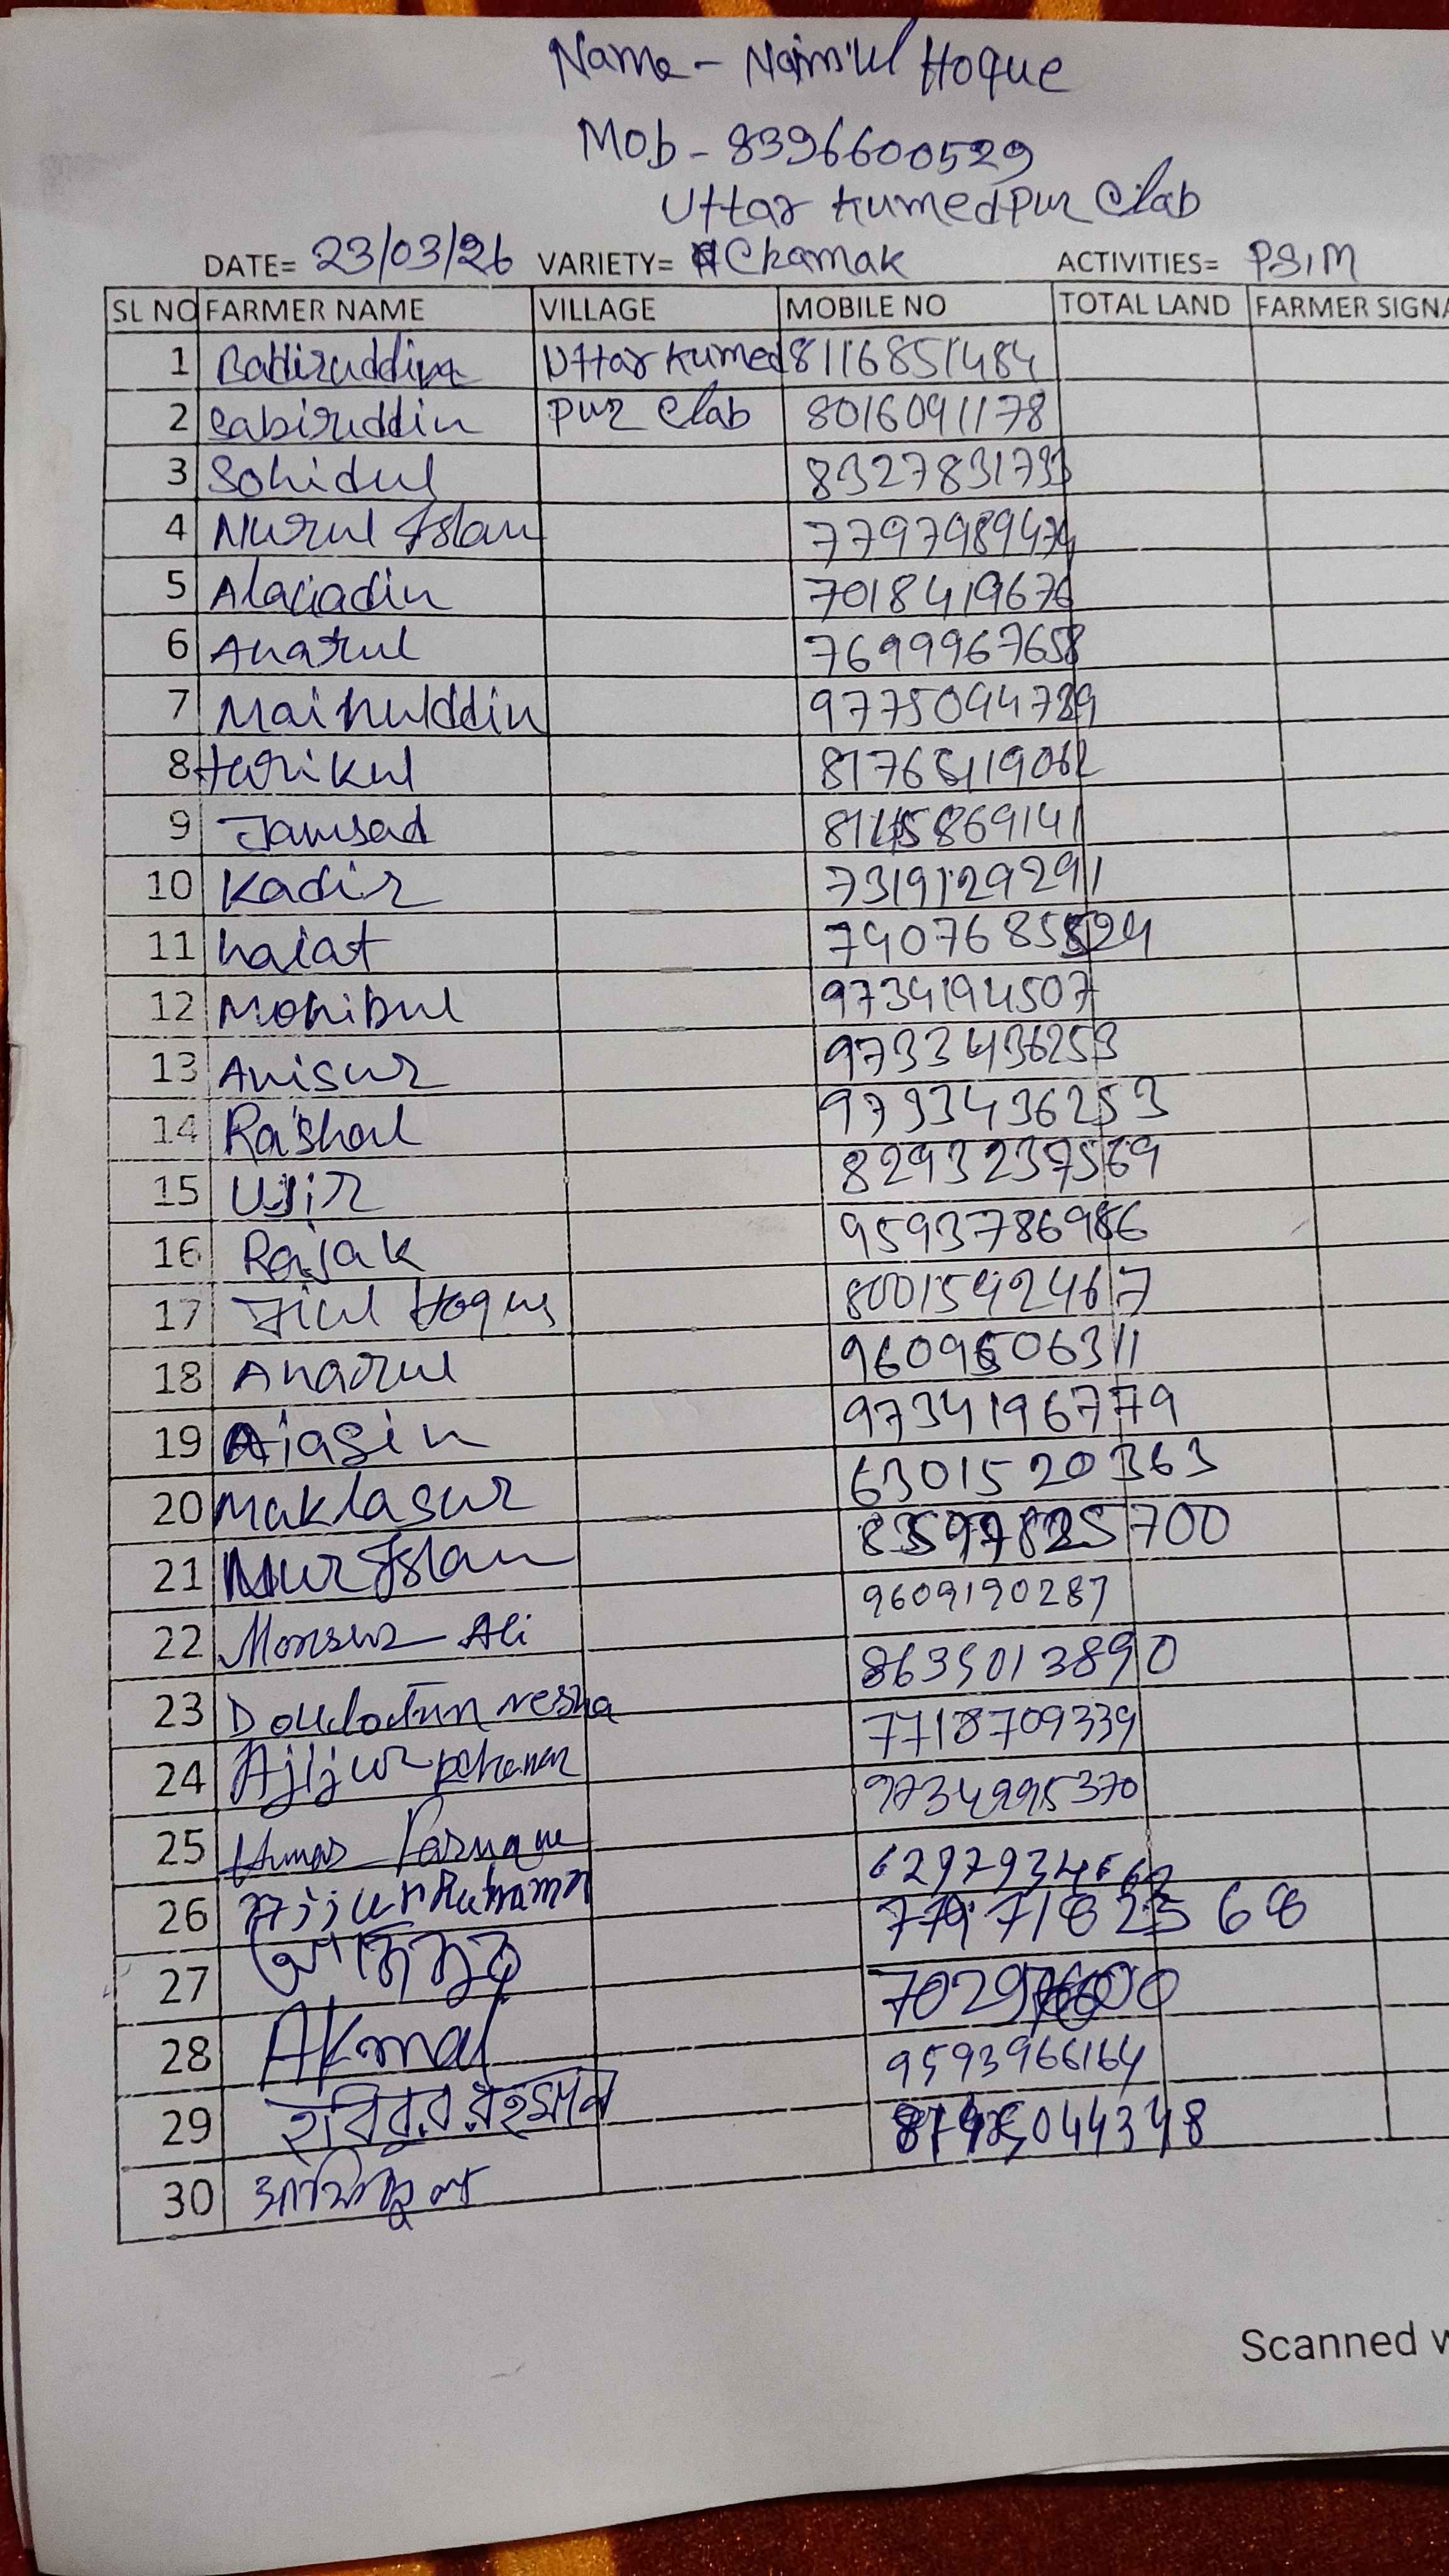 Name - Naimul Hoque
Mob - 8396600529
Uttar Kumedpur Clab
DATE= 23/03/26 VARIETY= Chamak ACTIVITIES= PSIM
SL NO FARMER NAME VILLAGE MOBILE NO TOTAL LAND FARMER SIGNA
1 Uttar Kumed 8116851484
2 Sabiruddin pur Clab 8016091178
3 Sohidul 8327831733
4 Nurul Islam 7797989474
5 7018419676
6 Anarul 7699967658
7 Mainulddin 9775094789
8 Tarikul
9 Jamsad 8145869141
10 Kadir 7319129291
11 haiat
12 Mohibul 9734194507
13 Anisur 9733436253
14 Rashal 9733436253
15 Ujir 8293237569
16 Rajak 9593786986
17 Jiul Hoque 8001592467
18 Anarul 9609606311
19 Aiasin 9734196779
20 Maklasur 6301520363
21 Nur Islam
22 Monsur Ali 9609190287
23 Doulatun nesha 8635013890
24 Ajijur Rahaman 7718709339
25 9734995370
26 Ajijur Rahaman
27 আজিজুর
28 Akmal
29 হবিবুর রহমান 9593966164
30
Scanned w